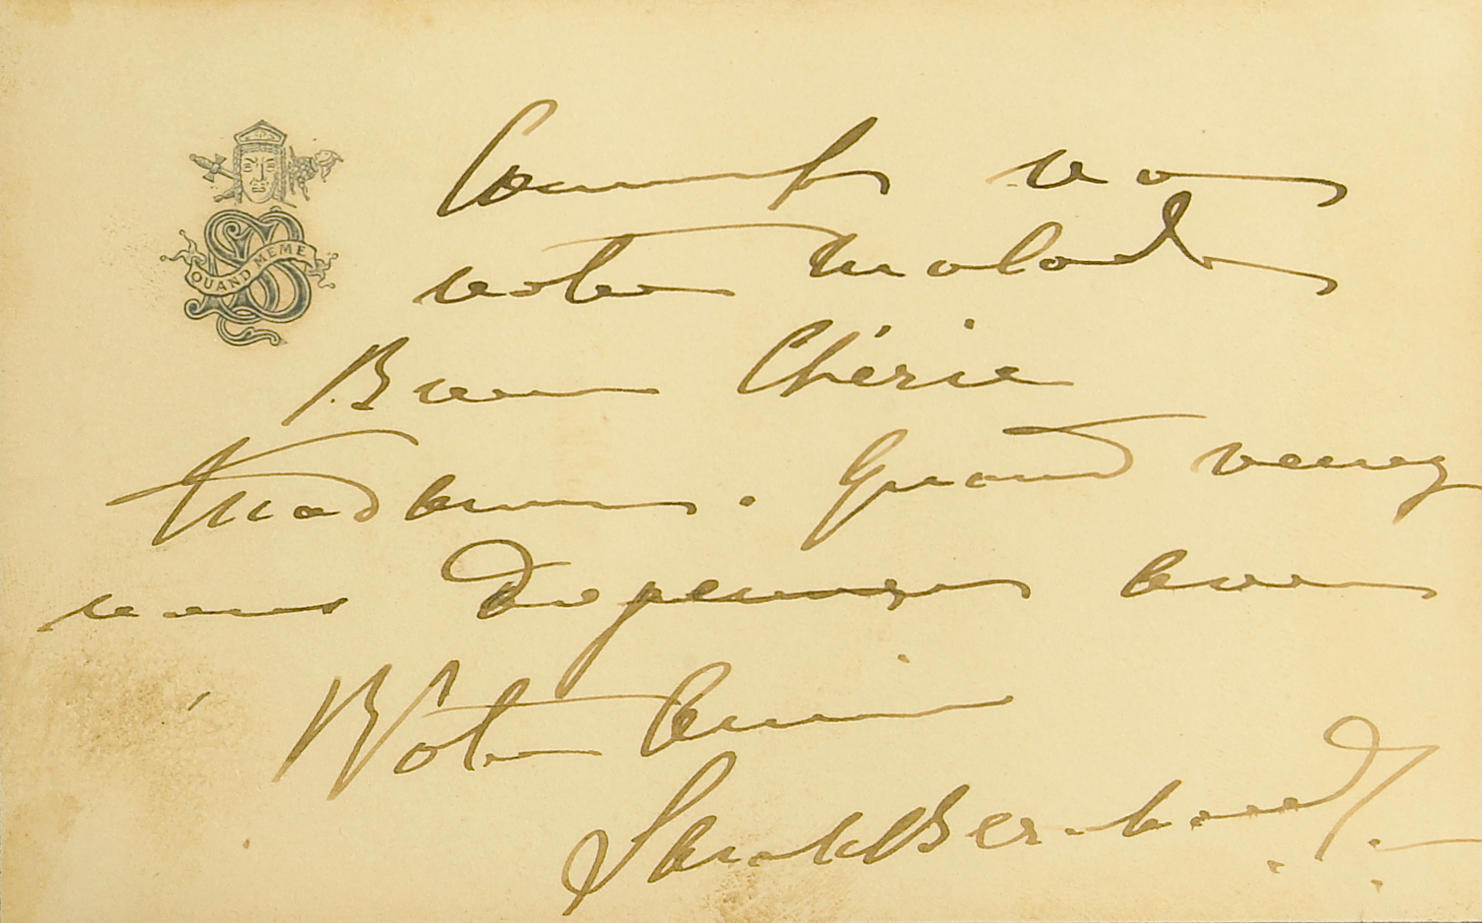 QUAND MEME
Comment va
votre malade
Bien Chérie
Madame. Quand venez
vous déjeuner avec
Votre amie
Sarah Bernhardt.